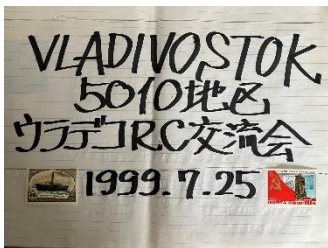 VLADIVOSTOK
5010地区
ウラデコRC交流会
1999.7.25